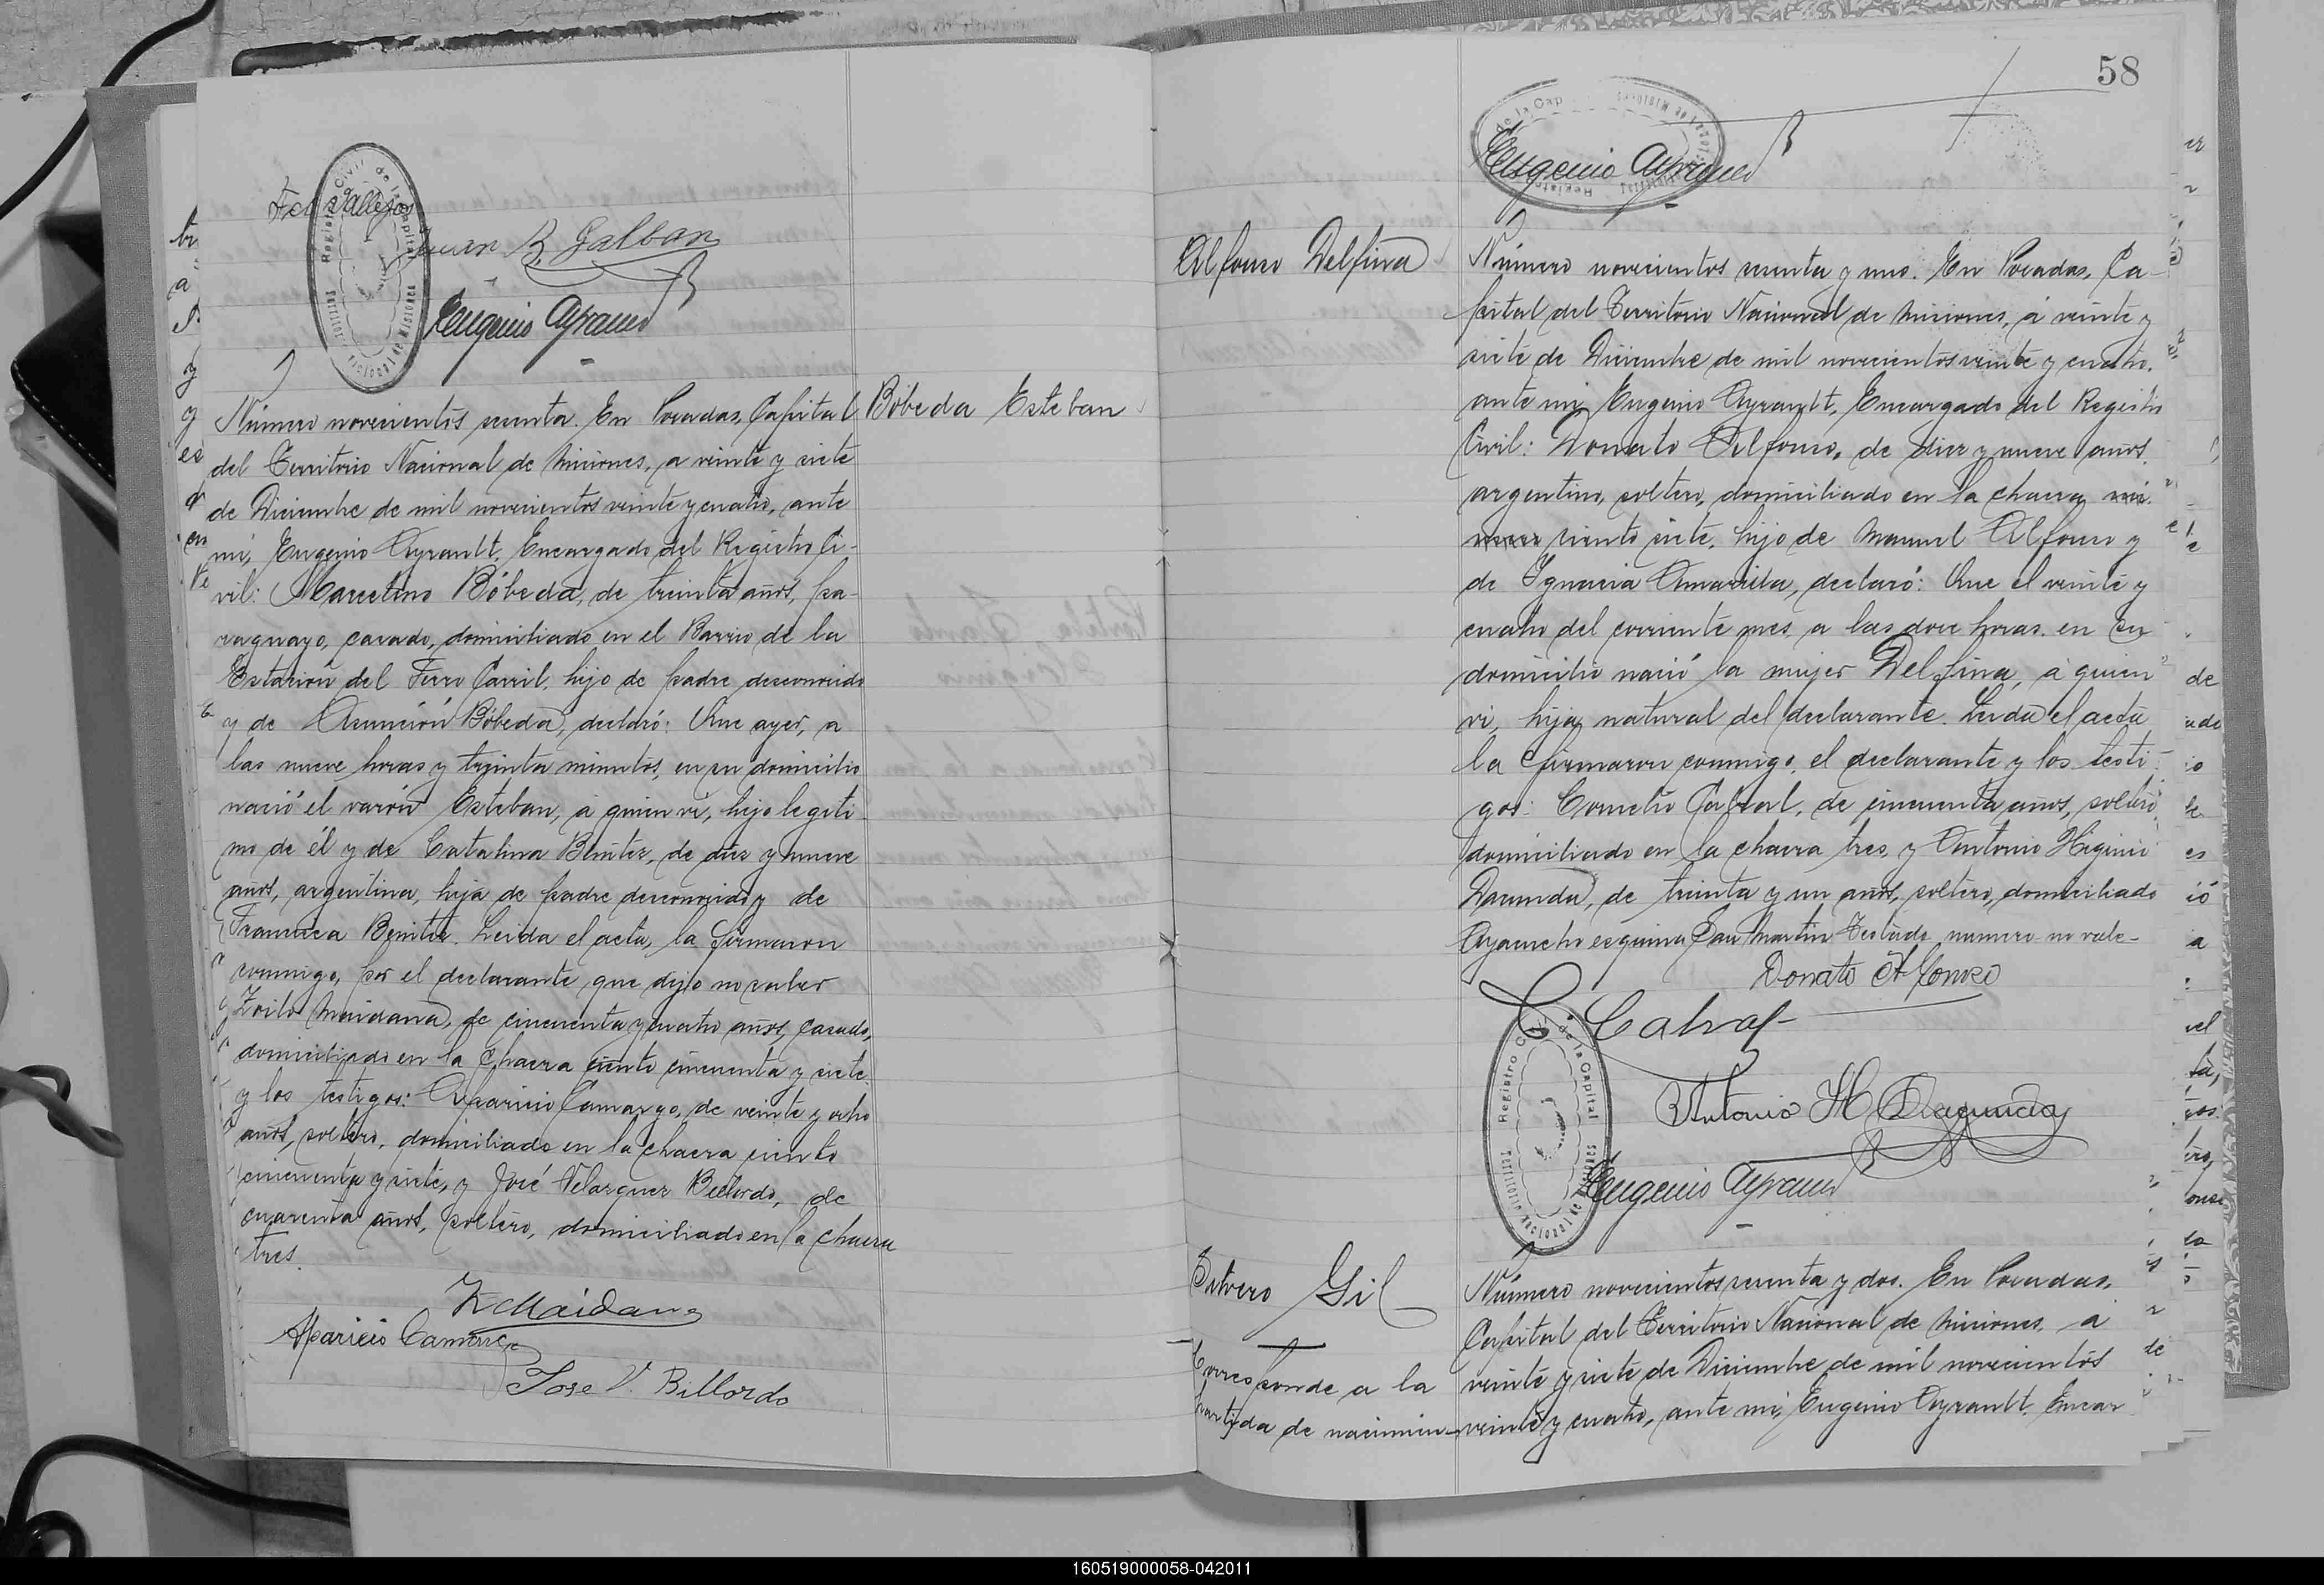 Vallejos
Juan B. Galban
Eugenio Ayrault
Bóbeda Esteban
Número novecientos sesenta. En Posadas, Capital
del Territorio Nacional de Misiones, a veinte y siete
de Diciembre de mil novecientos veinte y cuatro, ante
mí, Eugenio Ayrault, Encargado del Registro Ci-
vil: Marcelino Bóbeda, de treinta años, pa-
raguayo, casado, domiciliado en el Barrio de la
Estación del Ferro Carril, hijo de padre desconocido
y de Asunción Bóbeda, declaró: Que ayer, a
las nueve horas y treinta minutos, en su domicilio
nació el varón Esteban, á quien ví, hijo legíti-
mo de él y de Catalina Benitez, de diez y nueve
años, argentina, hija de padre desconocido y de
Francisca Benitez. Leida el acta, la firmaron
conmigo, por el declarante que dijo no saber
Zoilo Maidana, de cincuenta y cuatro años, casado,
domiciliado en la chacra ciento cincuenta y siete
y los testigos: Aparicio Camargo, de veinte y ocho
años, soltero, domiciliado en la chacra ciento
cincuenta y siete, y José Velazquez Billordo, de
cuarenta años, soltero, domiciliado en la chacra
tres.
Z Maidana
Aparicio Camargo
Jose V. Billordo
58
Eugenio Ayrault
Alfonso Delfina
Número novecientos sesenta y uno. En Posadas, Ca-
pital del Territorio Nacional de Misiones, á veinte y
siete de Diciembre de mil novecientos veinte y cuatro,
ante mi, Eugenio Ayrault, Encargado del Registro
Civil: Donato Alfonso, de diez y nueve años,
argentino, soltero, domiciliado en la chacra nú-
mero ciento siete, hijo de Manuel Alfonso y
de Ignacia Amarilla, declaró: Que el veinte y
cuatro del corriente mes, a las doce horas, en su
domicilio nació la mujer Delfina, á quien
ví, hija natural del declarante. Leida el acta
la firmaron conmigo, el declarante y los testi-
gos: Cornelio Cabral, de cincuenta años, soltero,
domiciliado en la chacra tres, y Antonio Higinio
Dacunda, de treinta y un años, soltero, domiciliado
Ayacucho esquina San Martin Testado numero no vale-
Donato Alfonso
C Cabral
Antonio H Dacunda
Eugenio Ayrault
Registro Civil de la Capital
Territorio Nacional de Misiones
Silvero Gil
Corresponde a la
partida de nacimien-
Número novecientos sesenta y dos. En Posadas,
Capital del Territorio Nacional de Misiones, á
veinte y siete de Diciembre de mil novecientos
veinte y cuatro, ante mi, Eugenio Ayrault, Encar
160519000058-042011